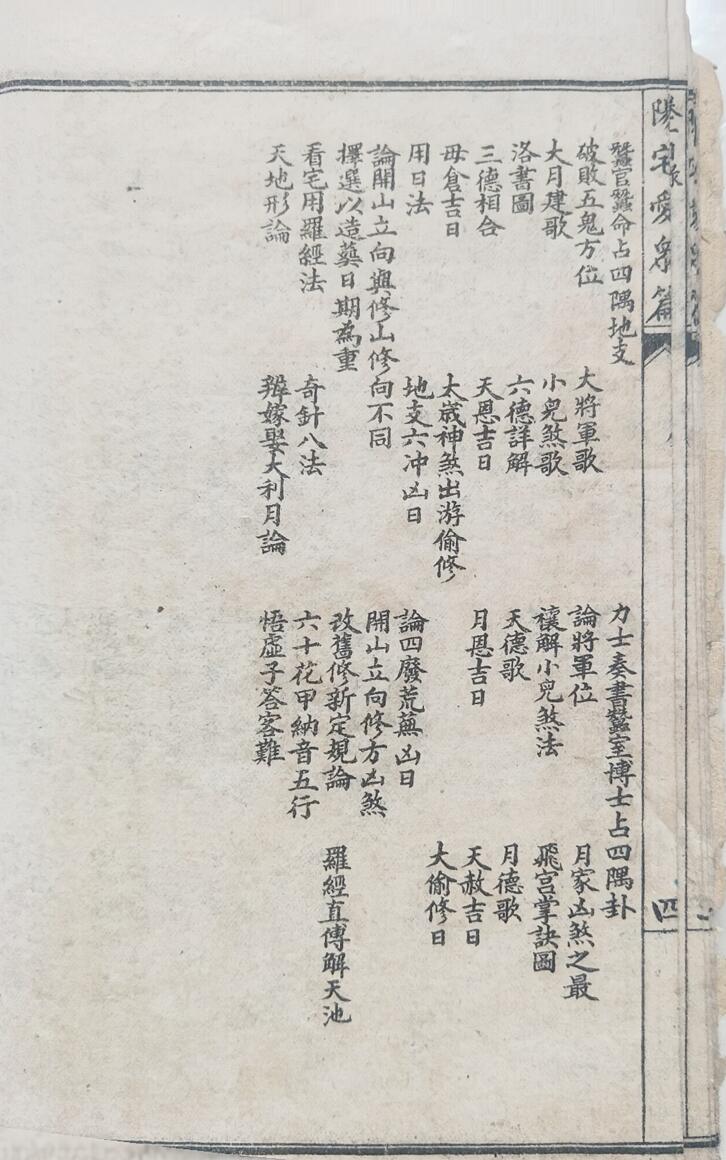 陽宅愛衆篇
四
蠶官蠶命占四隅地支
力士奏書蠶室博士占四隅卦
破敗五鬼方位
大將軍歌
論將軍位
月家凶煞之最
大月建歌
小兒煞歌
禳解小兒煞法
飛宮掌訣圖
洛書圖
六德詳解
天德歌
月德歌
三德相合
天恩吉日
月恩吉日
天赦吉日
母倉吉日
太歲神煞出游偷修
大偷修日
用日法
地支六冲凶日
論四廢荒蕪凶日
論開山立向與修山修向不同
開山立向修方凶煞
擇選以造塟日期為重
改舊修新定規論
羅經直傳解天池
看宅用羅經法
奇針八法
六十花甲納音五行
天地形論
辨嫁娶大利月論
悟虛子答客難